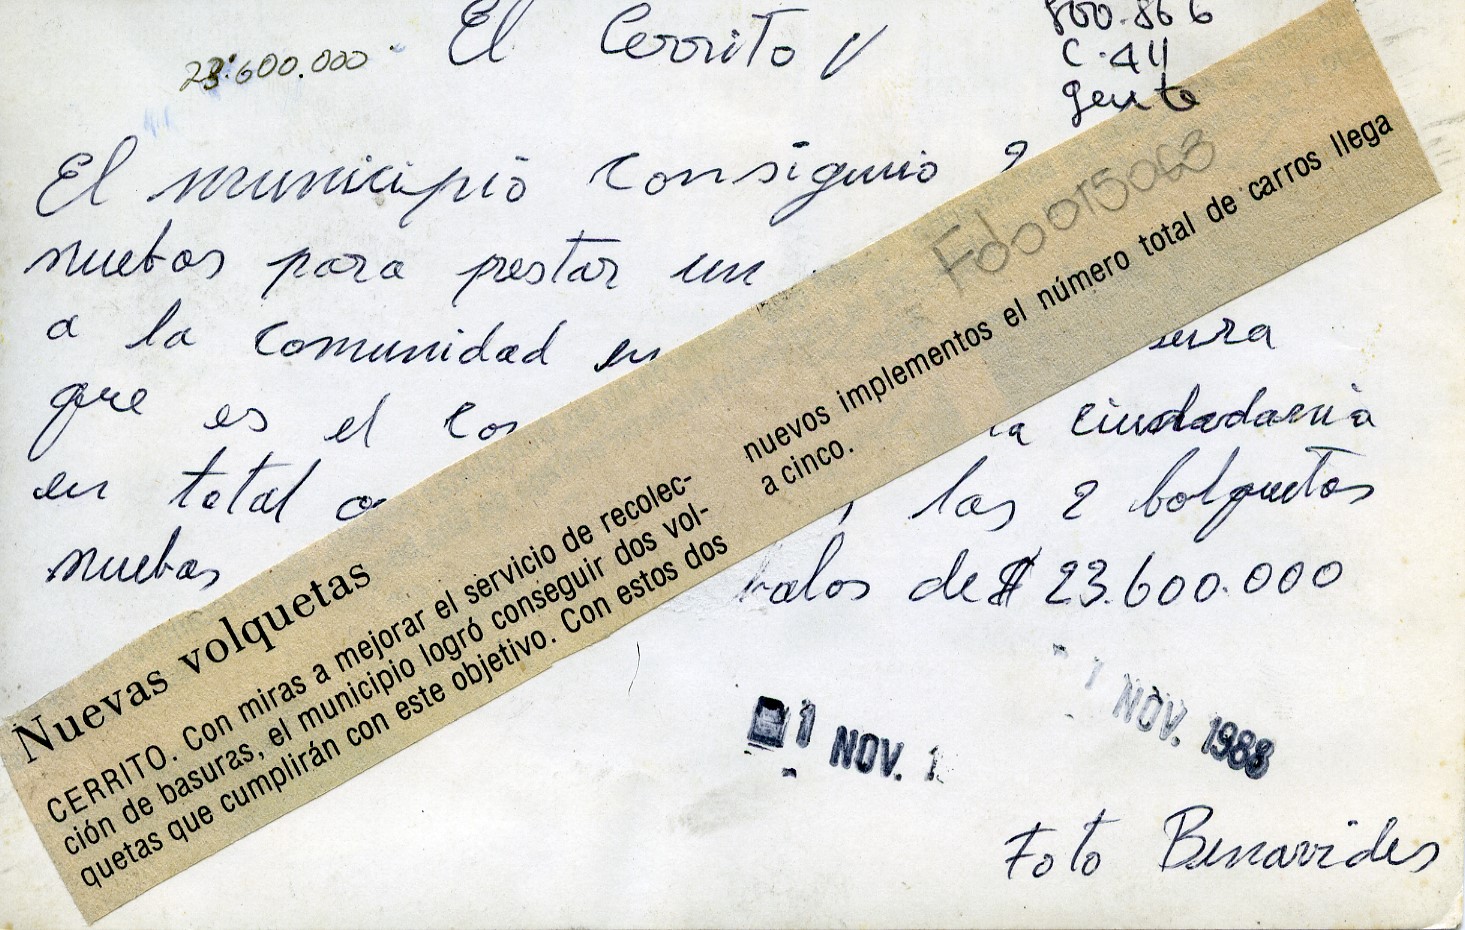 23.600.000
El Cerrito
800.866
C.411
gente
El municipio consiguio 2
nuebas para prestar un
a la comunidad en
que es el la ciudadania
en total las 2 bolquetas
nuebas balos de $ 23.600.000
Fdo015063
Nuevas volquetas
CERRITO. Con miras a mejorar el servicio de recolec-
ción de basuras, el municipio logró conseguir dos vol-
quetas que cumplirán con este objetivo. Con estos dos
nuevos implementos el número total de carros llega
a cinco.
1 NOV. 1
1 NOV. 1988
Foto Benavides